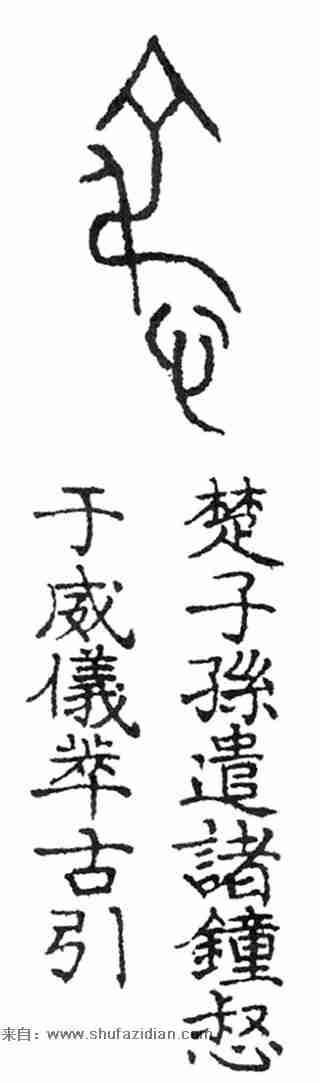 惄
楚子孫遣諸鐘惄
于威儀古引
来自：www.shufazidian.com